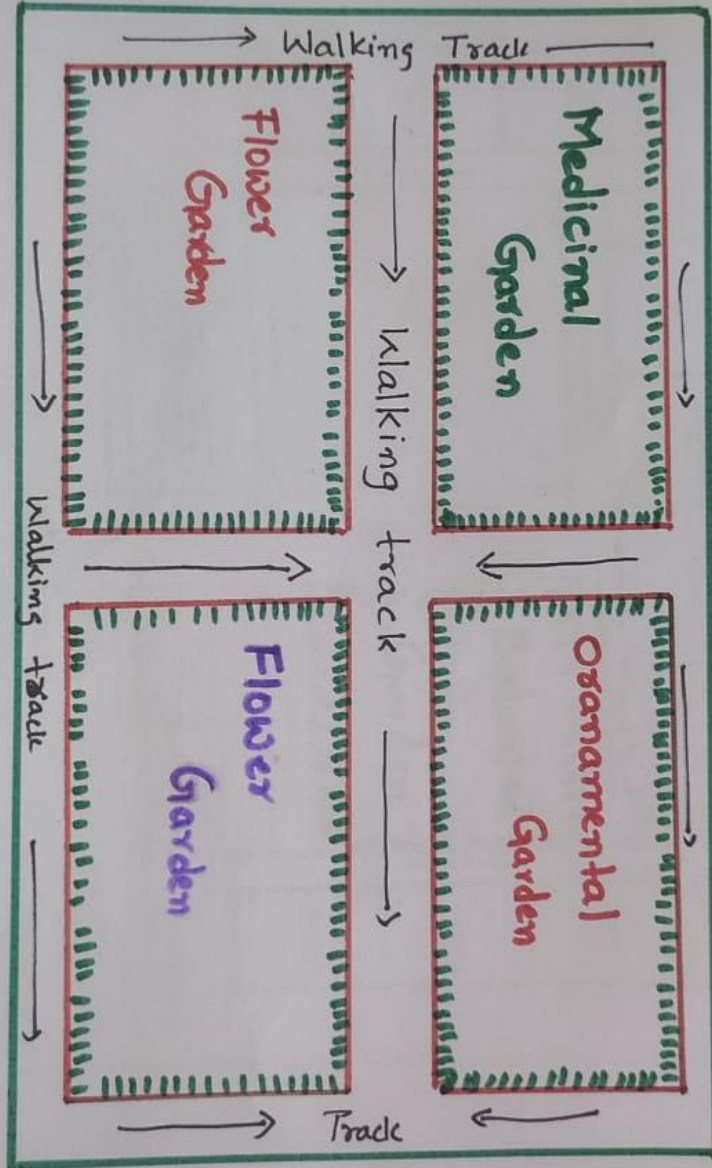 Walking Track
Flower
Garden
Medicinal
Garden
Walking track
Walking track
Flower
Garden
Oranamental
Garden
Track